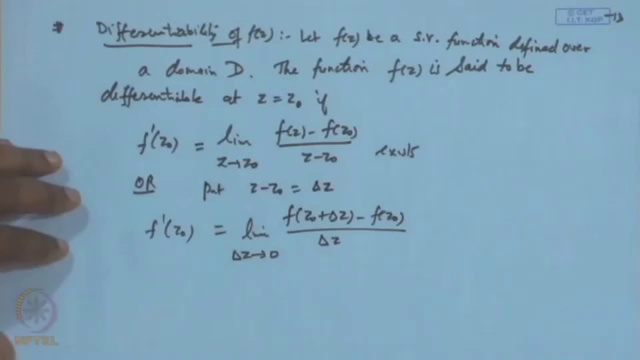 © CET
I.I.T. KGP
-13
* Differentiability of f(z) :- Let f(z) be a s.v. function defined over
a domain D. The function f(z) is said to be
differentiable at z = z₀ if
f'(z₀) = lim z→z₀ (f(z) - f(z₀)) / (z - z₀) exists
OR put z - z₀ = Δz
f'(z₀) = lim Δz→0 (f(z₀+Δz) - f(z₀)) / Δz
NPTEL